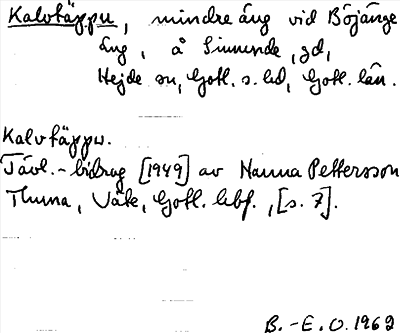 Kalvtäppu, mindre äng vid Böjänge
äng, å Simunde, gd,
Hejde sn, Gotl. s. hd, Gotl. län.
Kalvtäppu.
Tävl.-bidrag [1949] av Nanna Pettersson
Thuna, Väte, Gotl. hbf., [s. 7].
B.-E. O. 1962